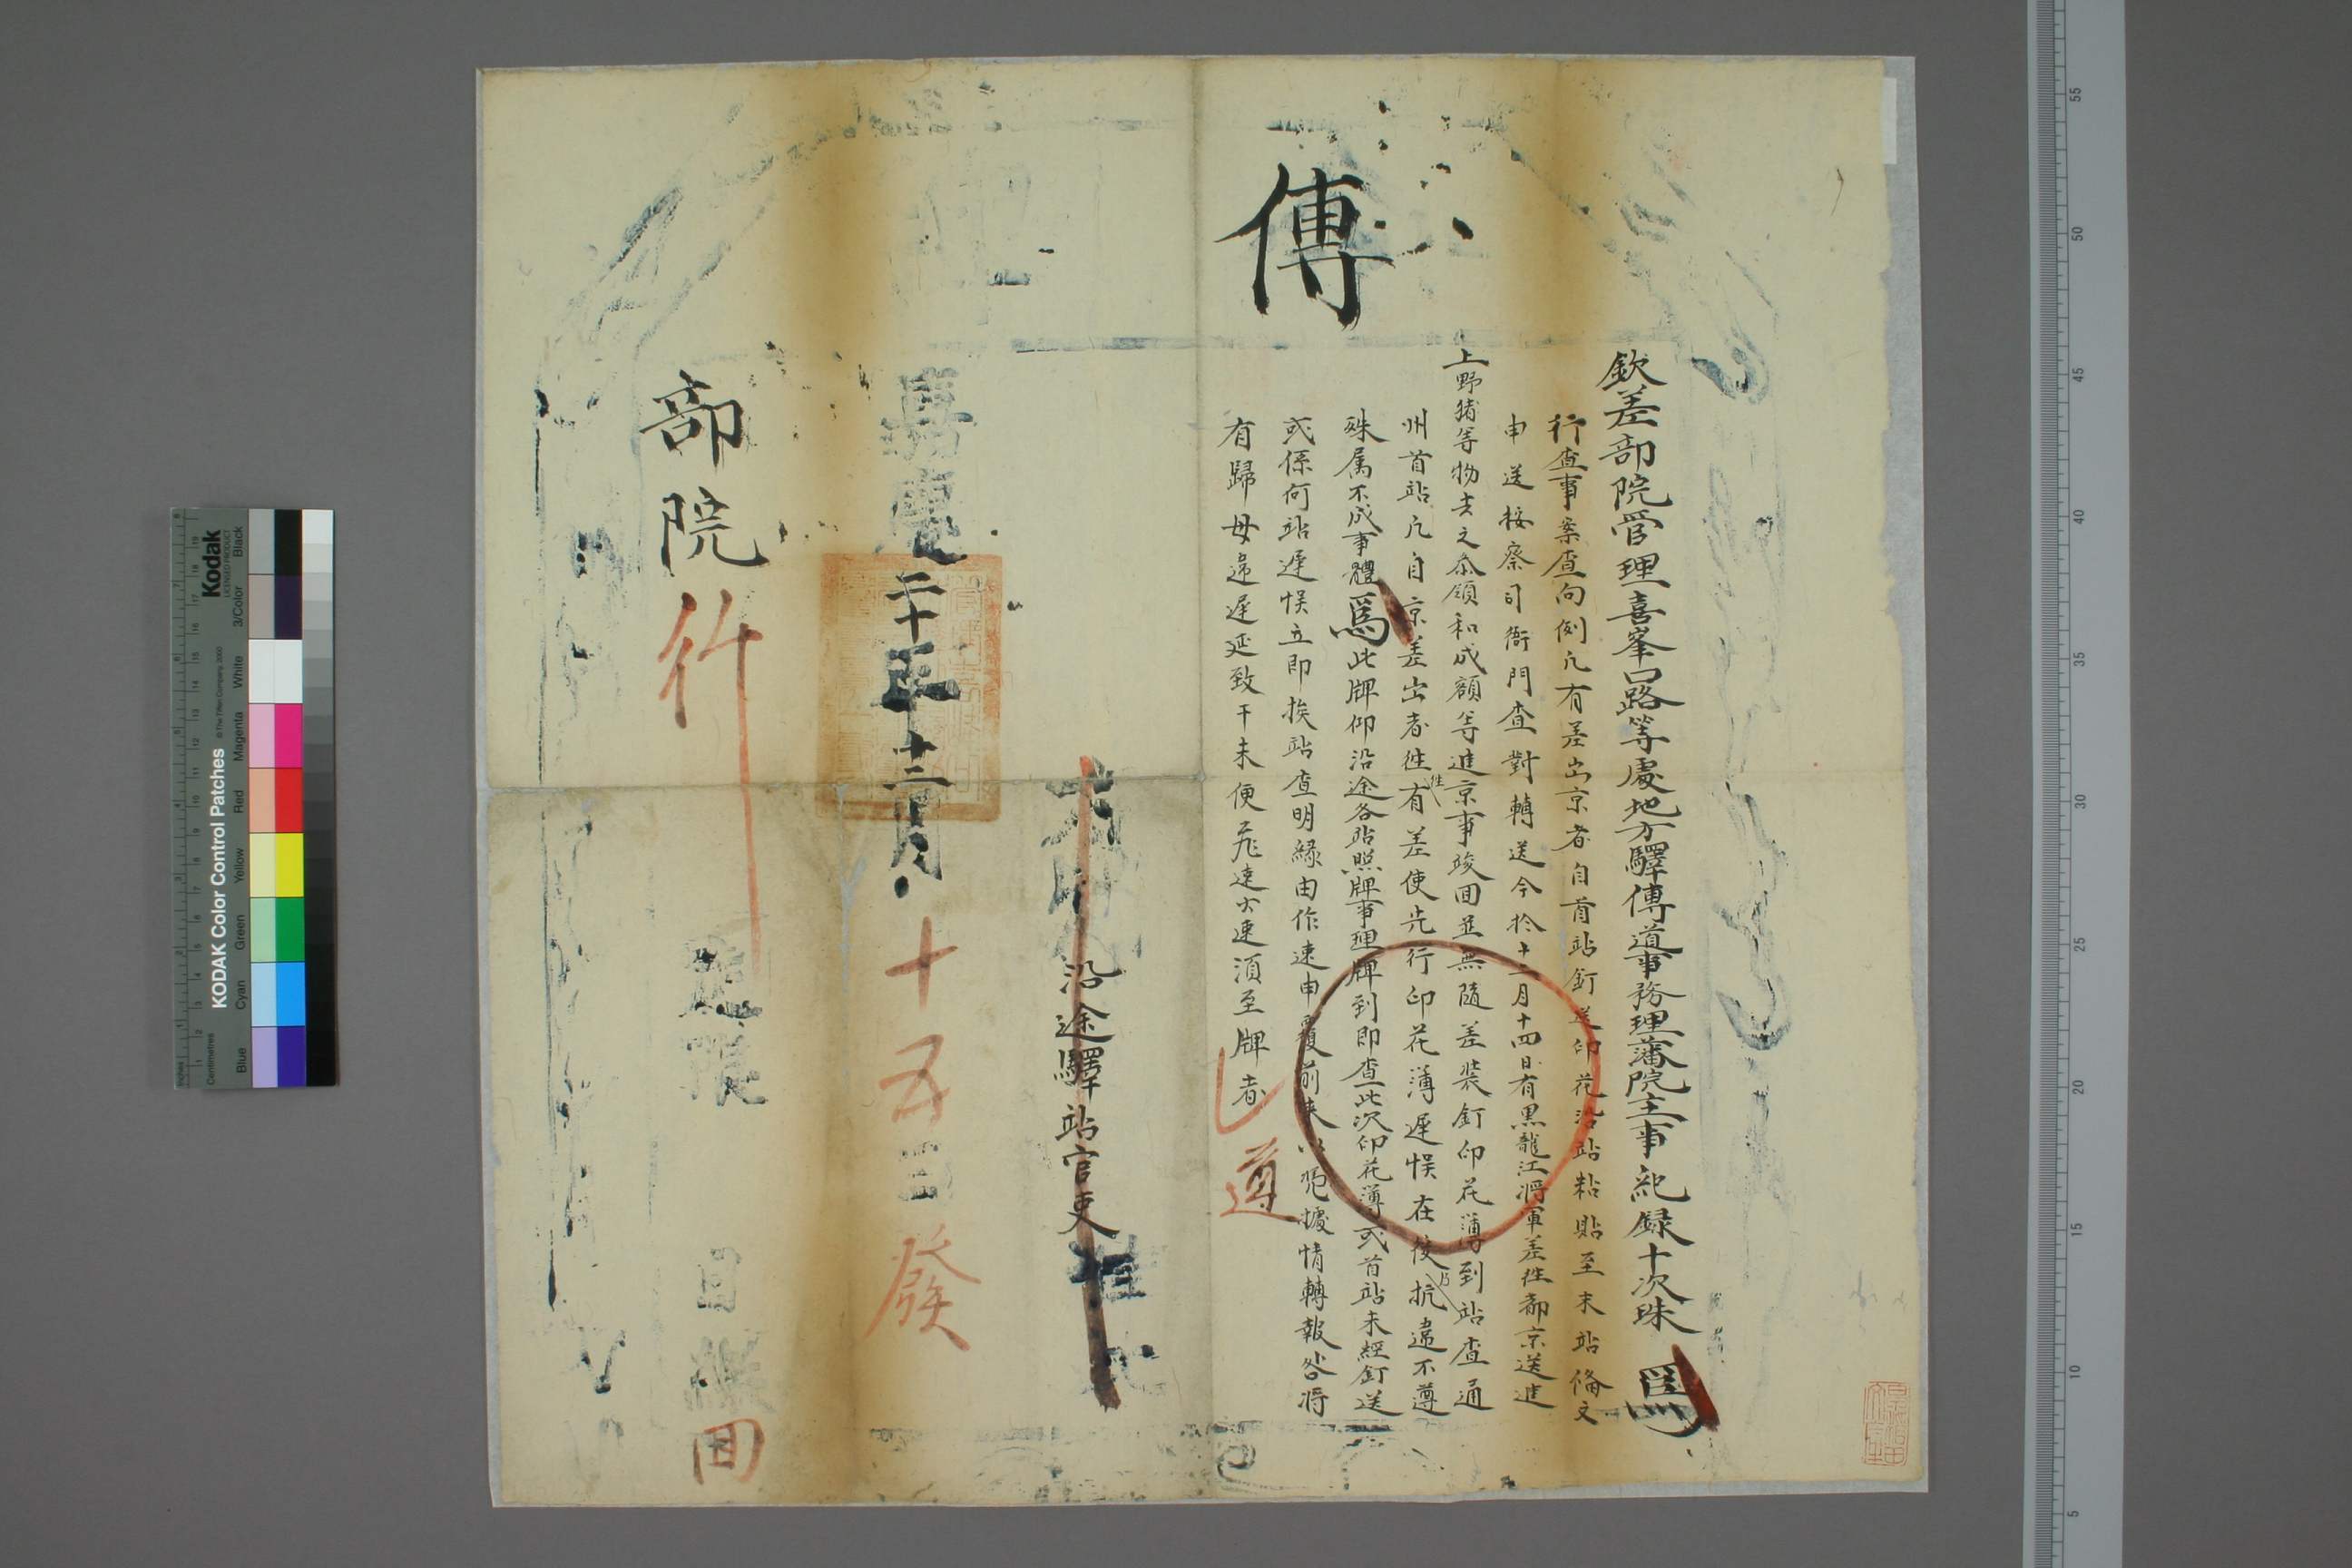 欽差部院管理喜峯口路等處地方驛傳道事務理藩院主事紀録十次珠 爲
行查事案查向例凢有差出京者自首站釘送印花沿站粘貼至末站俻文
申送按察司衙門查對轉送今於十二月十四日有黒龍江將軍差徃都京送進
上野猪等物去之恭領和成額等進京事竣回並無隨差裝釘印花薄到站查通
州首站凢自京差出者徃徃有差使先行印花薄遲悮在後抗違不遵
殊属不成事體爲此牌仰沿途各站照牌事理牌到即查此次印花薄或首站未經釘送
或係何站遲悮立即挨站查明緣由作速申覆前來以凴據情轉報咎將
有歸毋違遲延致干未便飛速火速須至牌者
遵
傳
右牌仰沿途驛站官吏准此
嘉慶二十五年十二月十五日發
部院行
定限 日繳回